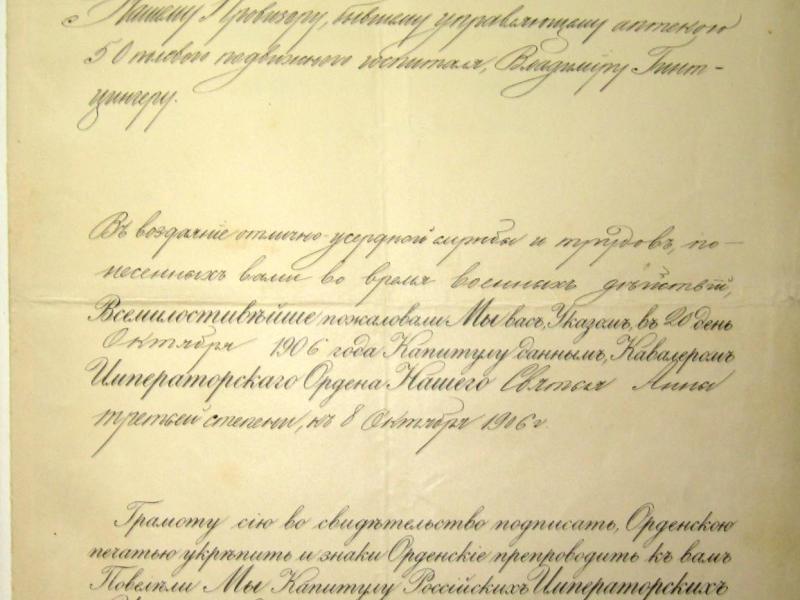 Нашему Провизору, бывшему управляющему аптекою
50 полевого подвижного госпиталя, Владимиру Гинт-
цингеру.
Въ воздаянiе отлично-усердной службы и трудовъ, по-
несенныхъ вами во время военныхъ дѣйствiй,
Всемилостивѣйше пожаловали Мы васъ, Указомъ, въ 20 день
Октября 1906 года Капитулу даннымъ, Кавалеромъ
Императорскаго Ордена Нашего Святыя Анны
третьей степени, къ 8 Октября 1906 г.
Грамоту сiю во свидѣтельство подписать, Орденскою
печатью укрѣпить и знаки Орденскiе препроводить къ вамъ
Повелѣли Мы Капитулу Россiйскихъ Императорскихъ